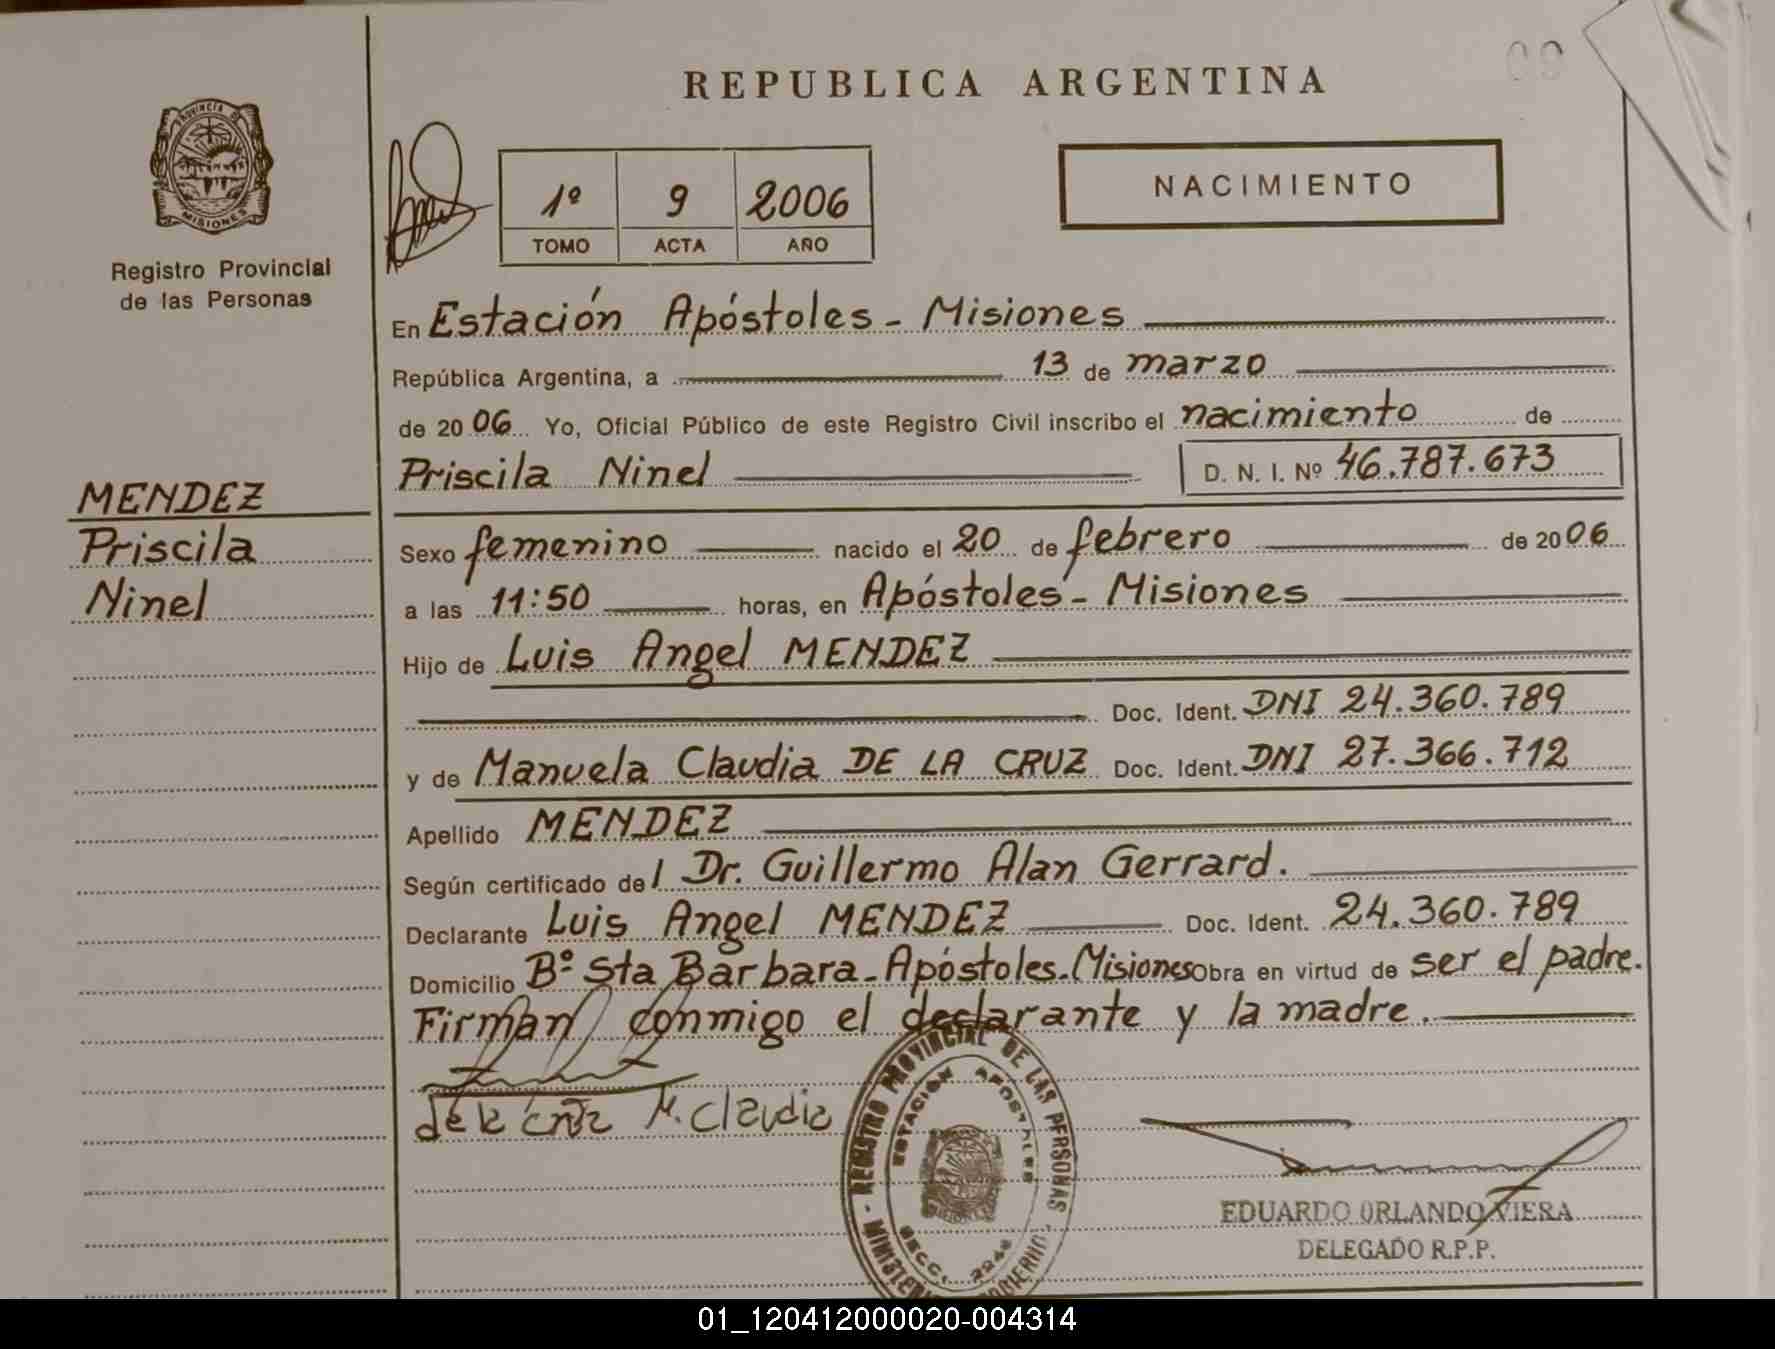 09
REPUBLICA ARGENTINA
PROVINCIA DE
MISIONES
Registro Provincial
de las Personas
1º 9 2006
TOMO ACTA AÑO
NACIMIENTO
En Estación Apóstoles - Misiones
República Argentina, a 13 de marzo
de 2006 Yo, Oficial Público de este Registro Civil inscribo el nacimiento de
Priscila Ninel D. N. I. Nº 46.787.673
MENDEZ
Priscila
Ninel
Sexo femenino nacido el 20 de febrero de 2006
a las 11:50 horas, en Apóstoles - Misiones
Hijo de Luis Angel MENDEZ
Doc. Ident. DNI 24.360.789
y de Manuela Claudia DE LA CRUZ Doc. Ident. DNI 27.366.712
Apellido MENDEZ
Según certificado del Dr. Guillermo Alan Gerrard.
Declarante Luis Angel MENDEZ Doc. Ident. 24.360.789
Domicilio Bº Sta Barbara - Apóstoles - Misiones Obra en virtud de ser el padre.
Firman conmigo el declarante y la madre.
de la cruz M. Claudia
REGISTRO PROVINCIAL DE LAS PERSONAS
ESTACIÓN APOSTOLES
SECC.
EDUARDO ORLANDO VIERA
DELEGADO R.P.P.
01_120412000020-004314